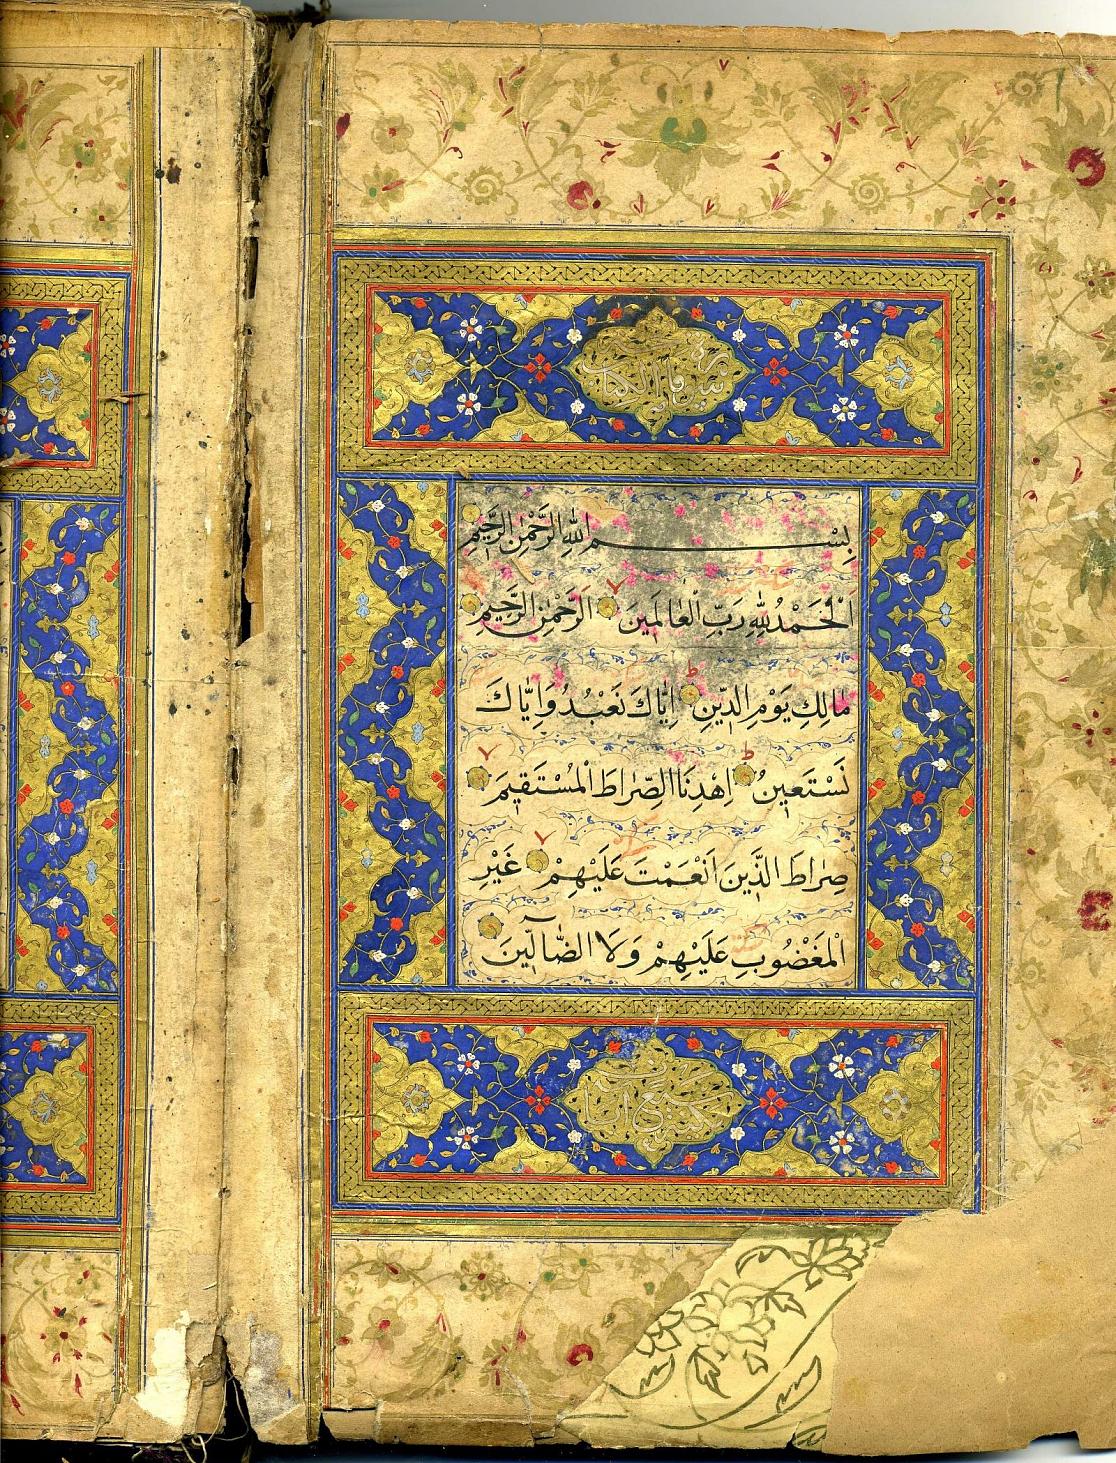 سورة فاتحة الكتاب
بِسْمِ اللّٰهِ الرَّحْمٰنِ الرَّحٖيمِ
اَلْحَمْدُ لِلّٰهِ رَبِّ الْعٰالَمٖينَ الرَّحْمٰنِ الرَّحٖيمِ
مٰالِكِ يَوْمِ الدّٖينِ اِيّٰاكَ نَعْبُدُ وَاِيّٰاكَ
نَسْتَعٖينُ اِهْدِنَا الصِّرٰاطَ الْمُسْتَقٖيمَ
صِرٰاطَ الَّذٖينَ اَنْعَمْتَ عَلَيْهِمْ غَيْرِ
الْمَغْضُوبِ عَلَيْهِمْ وَلَا الضّٰٓالّٖينَ
سبع آيات